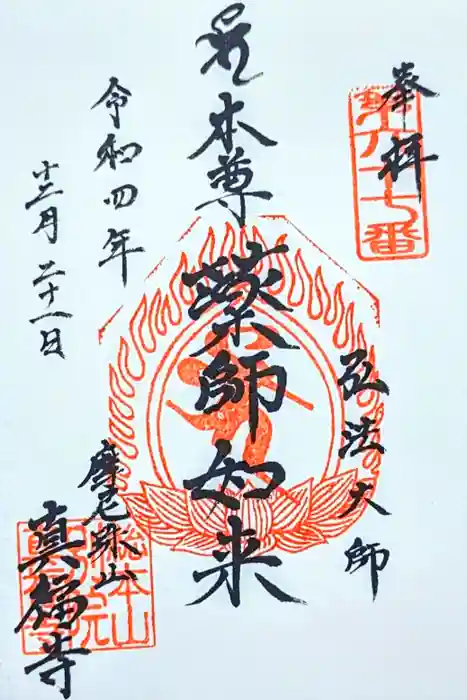 奉拝
第六十七番
弘法大師
本尊 薬師如来
令和四年
十二月二十一日
摩尼珠山
真福寺
総本山